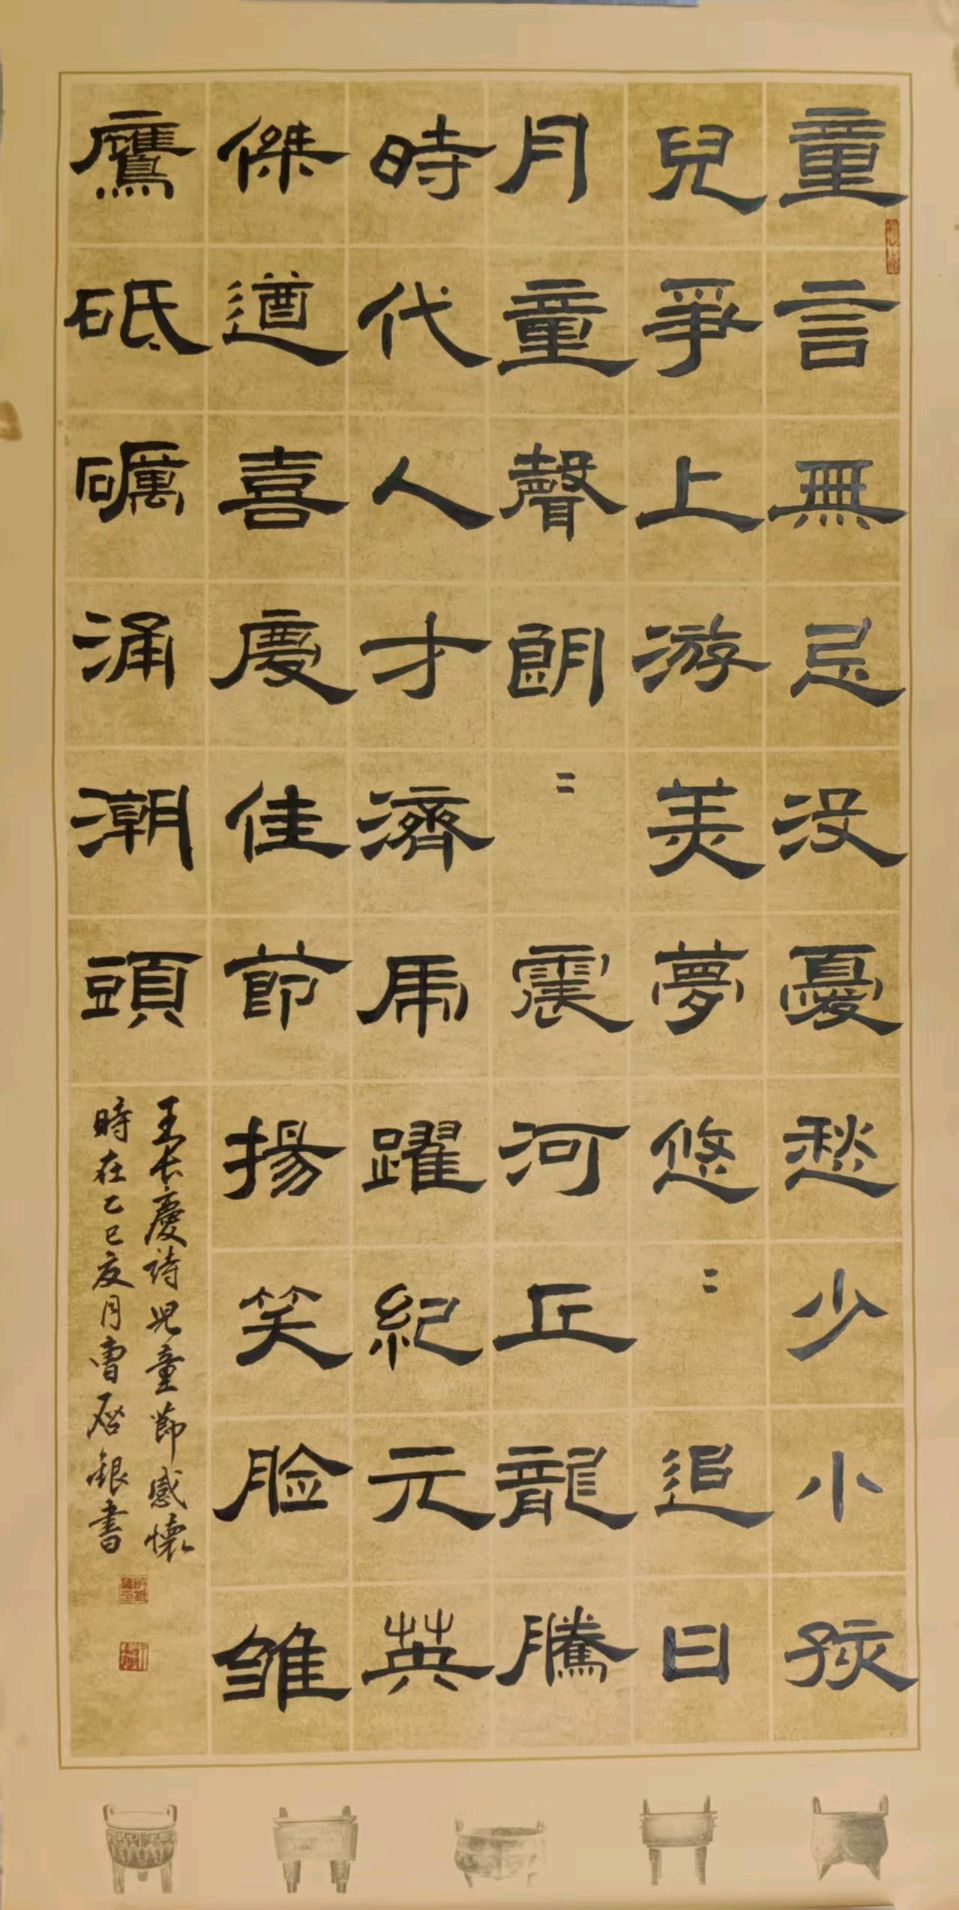 童言無忌没憂愁少小孩
兒爭上游美夢悠〻追日
月童聲朗〻震河丘龍騰
時代人才濟濟虎躍紀元英
傑遒喜慶佳節揚笑脸雏
鷹砥礪涌潮頭
王長慶詩兒童節感懷
時在乙巳夏月曹啓銀書